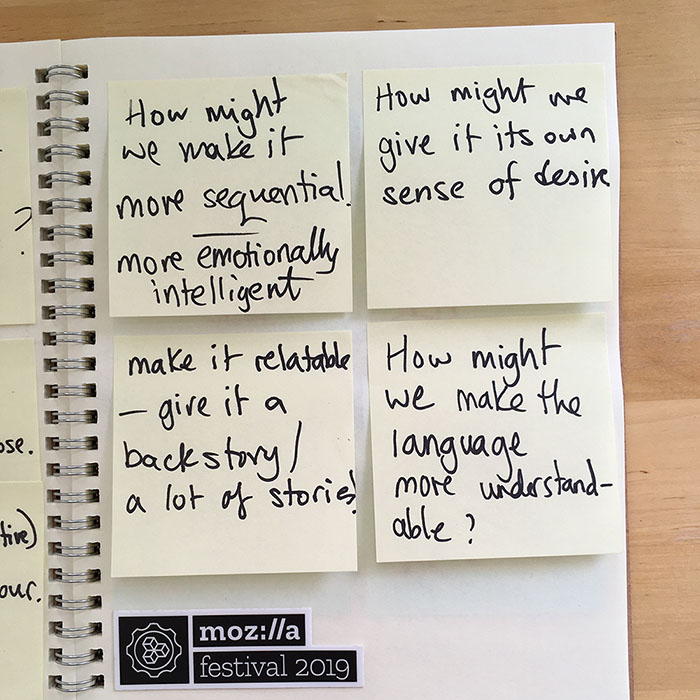 How might
we make it
more sequential.
more emotionally
intelligent
How might we
give it its own
sense of desire
make it relatable
— give it a
backstory/
a lot of stories!
How might
we make the
language
more understand-
able?
?
ose.
tive)
our.
moz://a
festival 2019